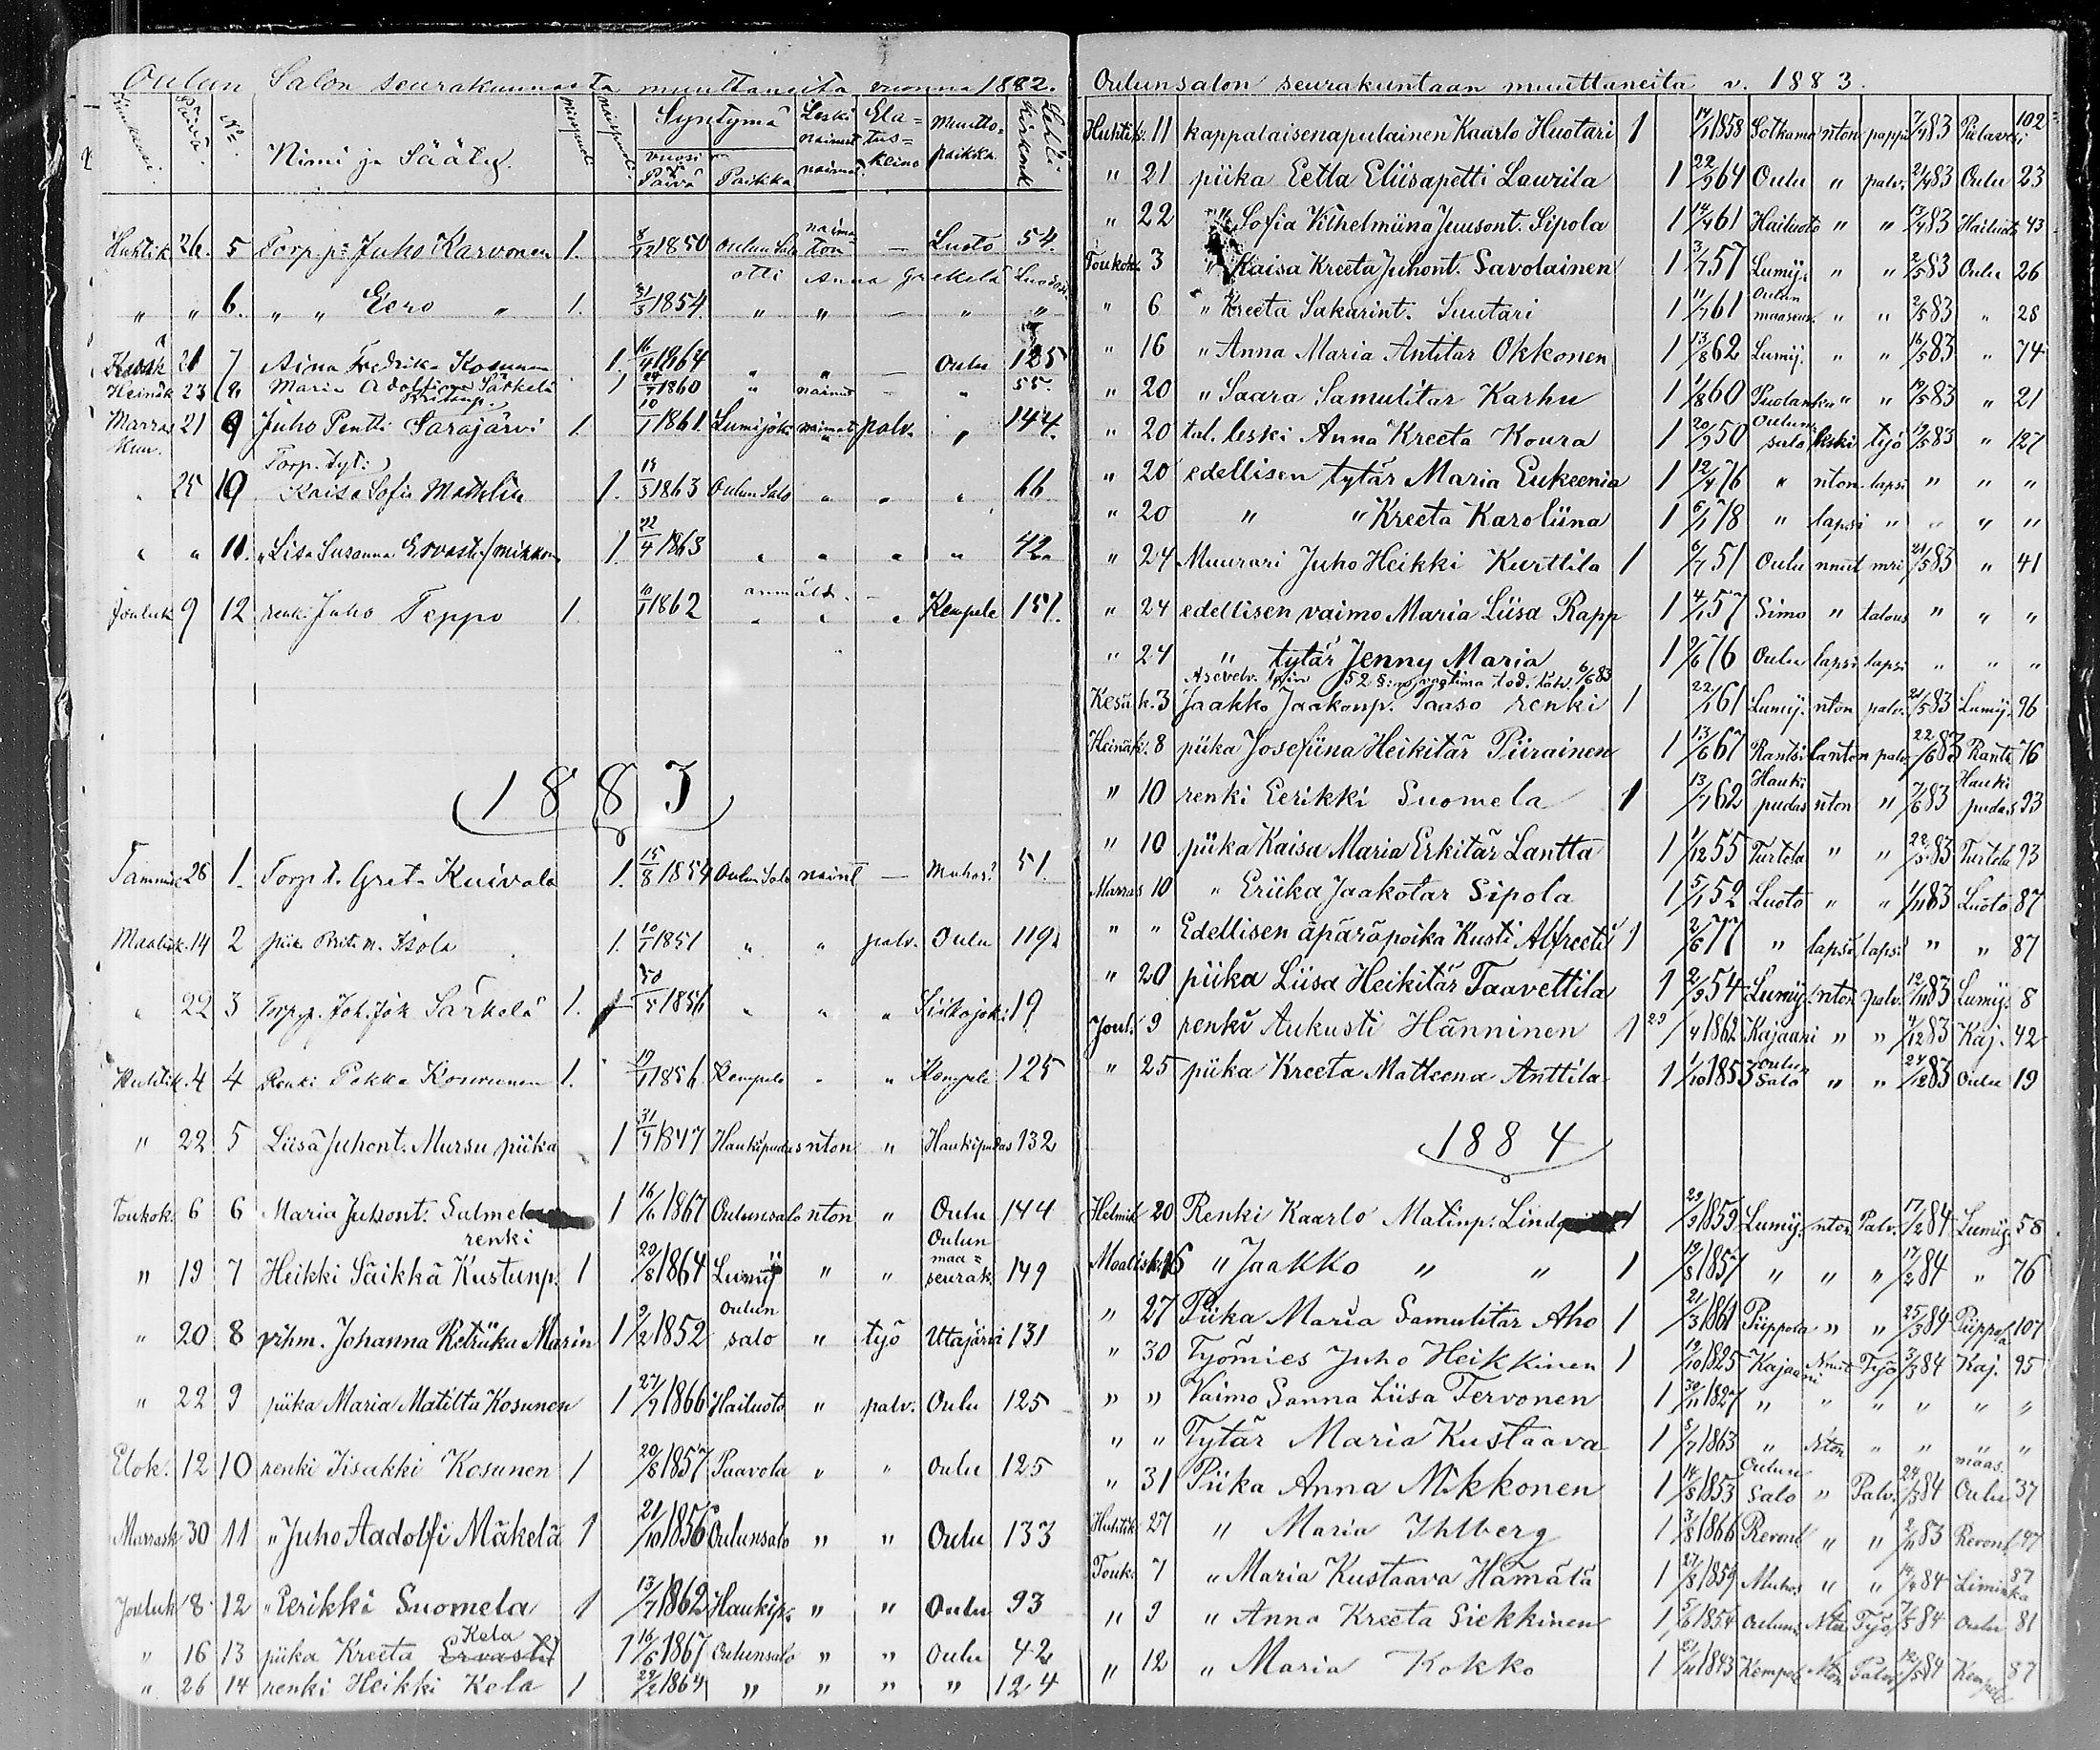 Oulun Salon seurakunnasta muuttaneita vuonna 1882.
Kuukausi. Päivä. No. Nimi ja Sääty. miespuol. naispuol. Syntymä vuosi ja Päivä Paikka Leski nainut naimat. Ela=tus=keino Muutto=paikka.
Huhtik. 26. 5 Torp. p: Juho Karvonen 1. 8/12 1850 Oulun Salo naima=ton — Luoto 54.
otti Anna Grekelä
" " 6. " " Eero " 1. 31/3 1854. " " — " "
21 7 Aina Fredrika Kosunen 1. 16/4 1864 " " — Oulu 125
Heinäk 23 8 Maria Adolfina Särkelä 1 24/7 1860 " nainut — " 55.
Marras kuu. 21 9 Juho Pentti Sarajärvi 1. 10/1 1861. Lumijoki naimat palv. " 144.
Torp. tyt:
" 25 10 Kaisa Sofia Mattelin 1. 15/5 1863 Oulun Salo " " " 66
" " 11. " Lisa Susanna Ervasti / Mikkon 1. 22/4 1863 " " " " 42.
anmäld. —
Jouluk 9 12 renk. Juho Teppo 1. 10/1 1862 " " " Kempele 151.
1883
Tammik 28 1. Torp. t. Gret. Kuivala 1. 15/8 1854 Oulun Salo naint — Muhos 51.
Maalisk. 14 2 piik. Brita M. Isola 1. 10/1 1851 " " palv. Oulu 119.
" 22 3 Torp. p. Joh. Jak Särkelä 1. 30/5 1856 " " " Siikajoki 19
Huhtik. 4 4 Renki Pekka Kourunen 1. 19/1 1856 Kempele " " Kempele 125
" 22 5 Liisa Juhont. Mursu piika 1 31/7 1847 Haukipudas nton " Haukipudas 132
Toukok. 6 6 Maria Juhont. Salmela 1 16/6 1867 Oulunsalo nton " Oulu 144
renki
" 19 7 Heikki Säikkä Kustunp. 1 29/8 1864 Lumij " " Oulun maa=seurak. 149
" 20 8 Johanna Retriika Marin 1 9/2 1852 Oulun salo " työ Utajärvi 131
" 22 9 piika Maria Matilta Kosunen 1 27/7 1866 Hailuoto " palv. Oulu 125
Elok. 12 10 renki Iisakki Kosunen 1 20/8 1857 Paavola " " Oulu 125
Marrask 30 11 " Juho Aadolfi Mäkelä 1 21/10 1856 Oulunsalo " " Oulu 133
Jouluk 8 12 " Eerikki Suomela 1 13/7 1862 Haukip. " " Oulu 93
Kela
" 16 13 piika Kreeta Ervasti 1 16/6 1867 Oulunsalo " " Oulu 42
" 26 14 renki Heikki Kela 1 29/2 1864 " " " " 124
Oulunsalon seurakuntaan muuttaneita v. 1883.
Huhtik. 11 kappalaisenapulainen Kaarlo Huotari 1 14/1 1858 Sotkamo nton pappi 7/4 83 Pielavesi 102
" 21 piika Eetla Eliisapetti Laurila 1 22/9 64 Oulu " palv. 21/4 83 Oulu 23
" 22 " Sofia Vilhelmiina Juusont. Sipola 1 14/4 61 Hailuoto " " 13/4 83 Hailuoto 43
Toukok. 3 " Kaisa Kreeta Juhont. Savolainen 1 3/7 57 Lumij. " " 2/5 83 Oulu 26
" 6 " Kreeta Sakarint. Suutari 1 11/7 61 Oulun maaseur. " " 2/5 83 " 28
" 16 " Anna Maria Antitar Okkonen 1 13/8 62 Lumij. " " 16/5 83 " 74
" 20 " Saara Samulitar Karhu 1 1/8 60 Puolanka " " 19/5 83 " 21
" 20 tal. leski Anna Kreeta Koura 1 20/9 50 Oulunsalo leski työ 19/5 83 " 127
" 20 edellisen tytär Maria Eukeenia 1 12/4 76 " nton lapsi " " "
" 20 " " Kreeta Karoliina 1 6/1 78 " lapsi " " " "
" 24 Muurari Juho Heikki Kurttila 1 6/7 51 Oulu nnut mri 21/5 83 " 41
" 24 edellisen vaimo Maria Liisa Rapp 1 4/1 57 Simo " talous " " "
" 24 " tytär Jenny Maria 1 9/6 76 Oulu lapsi lapsi " " "
Kesäk. 3 Jaakko Jaakonp. Paaso renki 1 22/1 61 Lumij. nton palv. 21/5 83 Lumij. 96
Heinäk. 8 piika Josefiina Heikitär Piirainen 1 13/6 67 Rantsila nton palv. 22/6 83 Rants 76
" 10 renki Eerikki Suomela 1 13/7 62 Haukipudas nton " 7/6 83 Haukipudas 93
" 10 piika Kaisa Maria Erkitär Lantta 1 1/12 55 Turtola " " 22/5 83 Turtola 93
Marras 10 " Eriika Jaakotar Sipola 1 5/1 52 Luoto " " 1/11 83 Luoto 87
" " Edellisen äpäräpoika Kusti Alfreeti 1 2/6 77 " lapsi lapsi " " 87
" 20 piika Liisa Heikitär Taavettila 1 2/9 54 Lumij. nton palv. 12/11 83 Lumij. 8
Joul. 9 renki Aukusti Hänninen 1 29/4 1862 Kajaani " " 4/12 83 Kaj. 42
" 25 piika Kreeta Matleena Anttila 1 1/10 1853 Oulun Salo " " 24/12 83 Oulu 19
1884
Helmik 20 Renki Kaarlo Matinp. 1 29/9 1859 Lumij. nton Palv. 17/2 84 Lumij. 58
Maalisk. 16 " Jaakko " " 1 19/8 1857 " " " 17/2 84 " 76
" 27 Piika Maria Samulitar Aho 1 21/3 1861 Piippola " " 25/3 84 Piippola 107
" 30 Työmies Juho Heikkinen 1 19/10 1825 Kajaani Nnut Työ 3/3 84 Kaj. 95
" " Vaimo Sanna Liisa Tervonen 1 30/11 1827 " " " " " "
" " Tytär Maria Kustaava 1 5/7 1863 " Nton " " " "
" 31 Piika Anna Mikkonen 1 14/8 1853 Oulun Salo " Palv. 24/3 84 maas. Oulu 37
Huhtik 27 " Maria Ihlberg 1 3/8 1866 Revonl " " 2/11 83 Revonl 147
Touk. 7 " Maria Kustaava Hämälä 1 27/8 1859 Muhos " " 19/4 84 Liminka 87
" 9 " Anna Kreeta Siekkinen 1 5/6 1854 Oulun Nton Työ 7/5 84 Oulu 81
" 12 " Maria Kokko 1 1843 Kempele Nton Palv. 12/5 84 Kempele 57